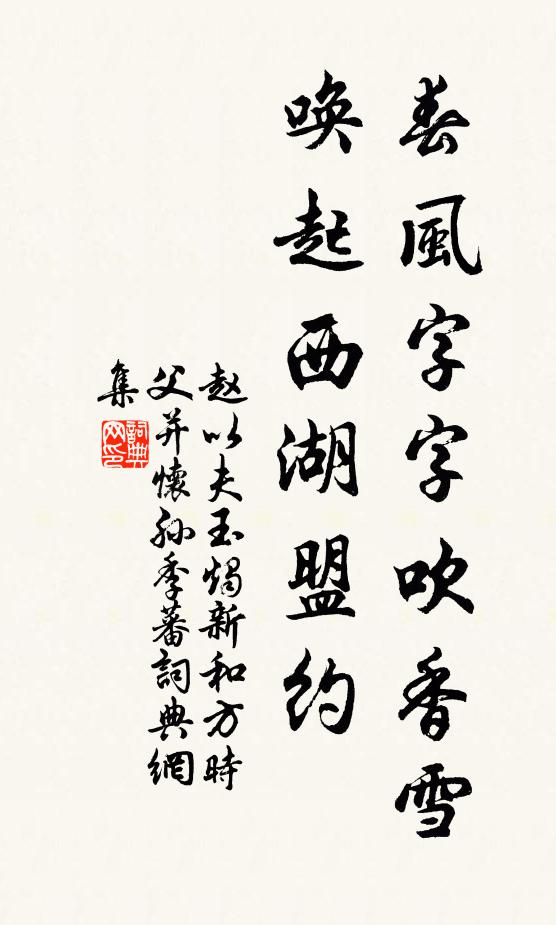 春風字字吹香雪
喚起西湖盟約
赵以夫玉燭新和方時
父并懷孙季蕃詞典網
集
詞典
网印